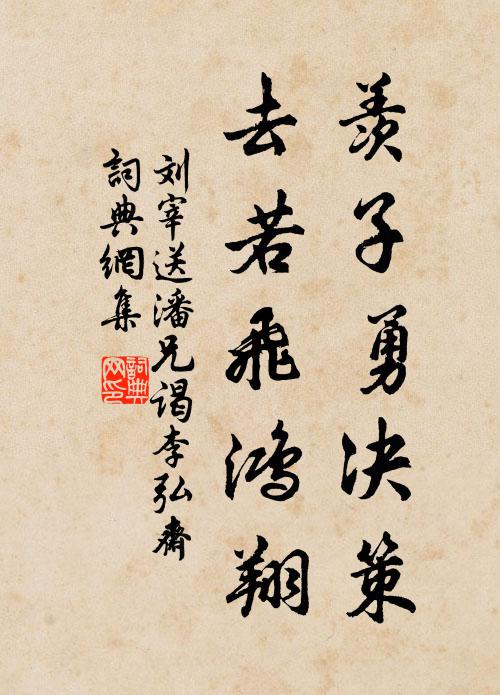 羨子勇决策
去若飛鴻翔
刘宰送潘兄谒李弘齋
詞典網集
詞典网印